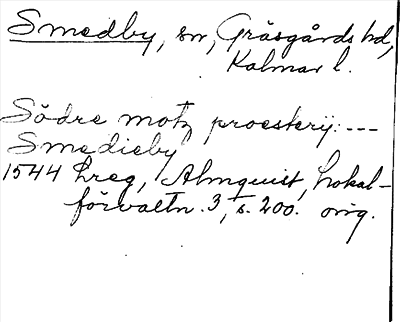 Smedby, sn, Gräsgårds hd,
Kalmar l.
Södre motz proesterij: ---
Smedieby
1544 Lreg, Almquist, Lokal-
förvaltn. 3, s. 200. orig.